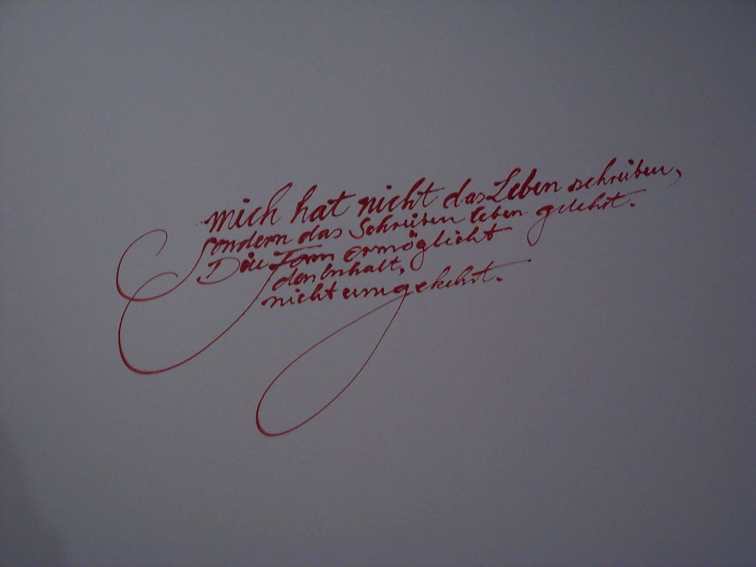 mich hat nicht das Leben schreiben,
sondern das Schreiben leben gelehrt.
Die Form ermöglicht
den Inhalt,
nicht umgekehrt.